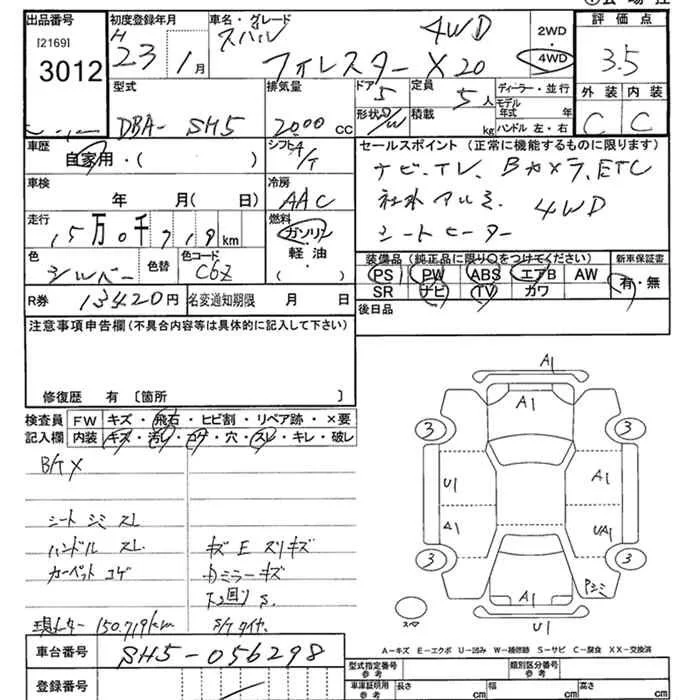 出品番号
[2169]
3012
初度登録年月
H
23 1月
車名・グレード
スバル 4WD
フォレスター X20
2WD
・
4WD
評価点
3.5
外装 内装
C C
型式
DBA- SH5
排気量
2000 cc
ドア
5
形状
定員
5人
積載
kg
ディーラー・並行
モデル
年式 年
ハンドル 左・右
車歴
自家用・( )
シフト
A/T
セールスポイント (正常に機能するものに限ります)
ナビ、TV、Bカメラ、ETC
社外アルミ、4WD
シートヒーター
車検
年 月( 日)
冷房
AAC
走行
15万0千719km
燃料
ガソリン
軽油
( )
色
シルバー
色替
色コード
C6Z
装備品 (純正品に限り○をつけてください)
PS PW ABS エアB AW
SR ナビ TV カワ
新車保証書
有・無
R券 13420円
名変通知期限 月 日
後日品
注意事項申告欄(不具合内容等は具体的に記入して下さい)
修復歴 有 [箇所 ]
検査員
記入欄
FW キズ・飛石・ヒビ割・リペア跡・×要
内装 キズ・汚レ・コゲ・穴・スレ・キレ・破レ
B/T X
シート シミ スレ
ハンドル スレ
カーペット コゲ
現メーター 150,719km
キズ E スリキズ
ミラーキズ
下回り S.
S/Tタイヤ
A1
A1
3
3
U1
A1
A1
UA1
3
3
Pシミ
A1
U1
スペ
A−キズ E−エクボ U−凹み W−補修跡 S−サビ C−腐食 XX−交換済
車台番号 SH5-056298
登録番号
型式指定番号
参考
類別区分番号
参考
車庫証明用
参考
長さ cm
幅 cm
高さ cm